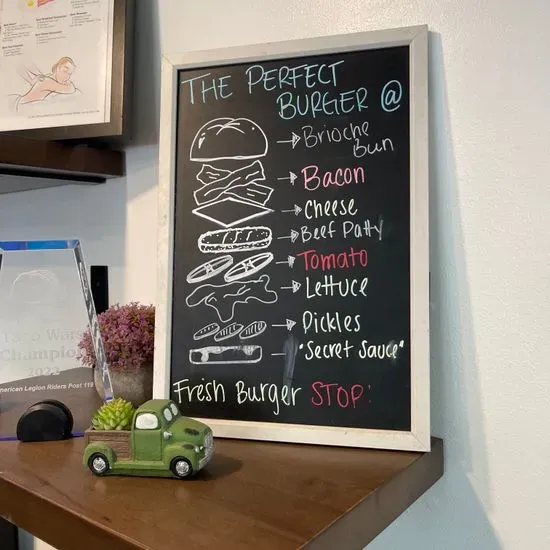 THE PERFECT
BURGER @
Brioche
Bun
Bacon
Cheese
Beef Patty
Tomato
Lettuce
Pickles
"Secret Sauce"
Fresh Burger STOP:
Taco Wars
Champion
2022
American Legion Riders Post 119